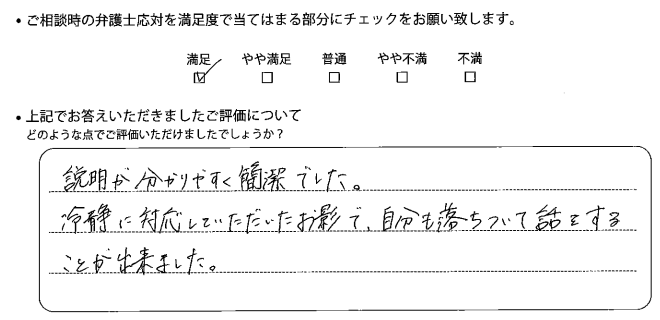 • ご相談時の弁護士応対を満足度で当てはまる部分にチェックをお願い致します。
満足 やや満足 普通 やや不満 不満
☑ □ □ □ □
• 上記でお答えいただきましたご評価について
どのような点でご評価いただけましたでしょうか？
説明が分かりやすく簡潔でした。
冷静に対応していただいたお影で、自分も落ちついて話をする
ことが出来ました。